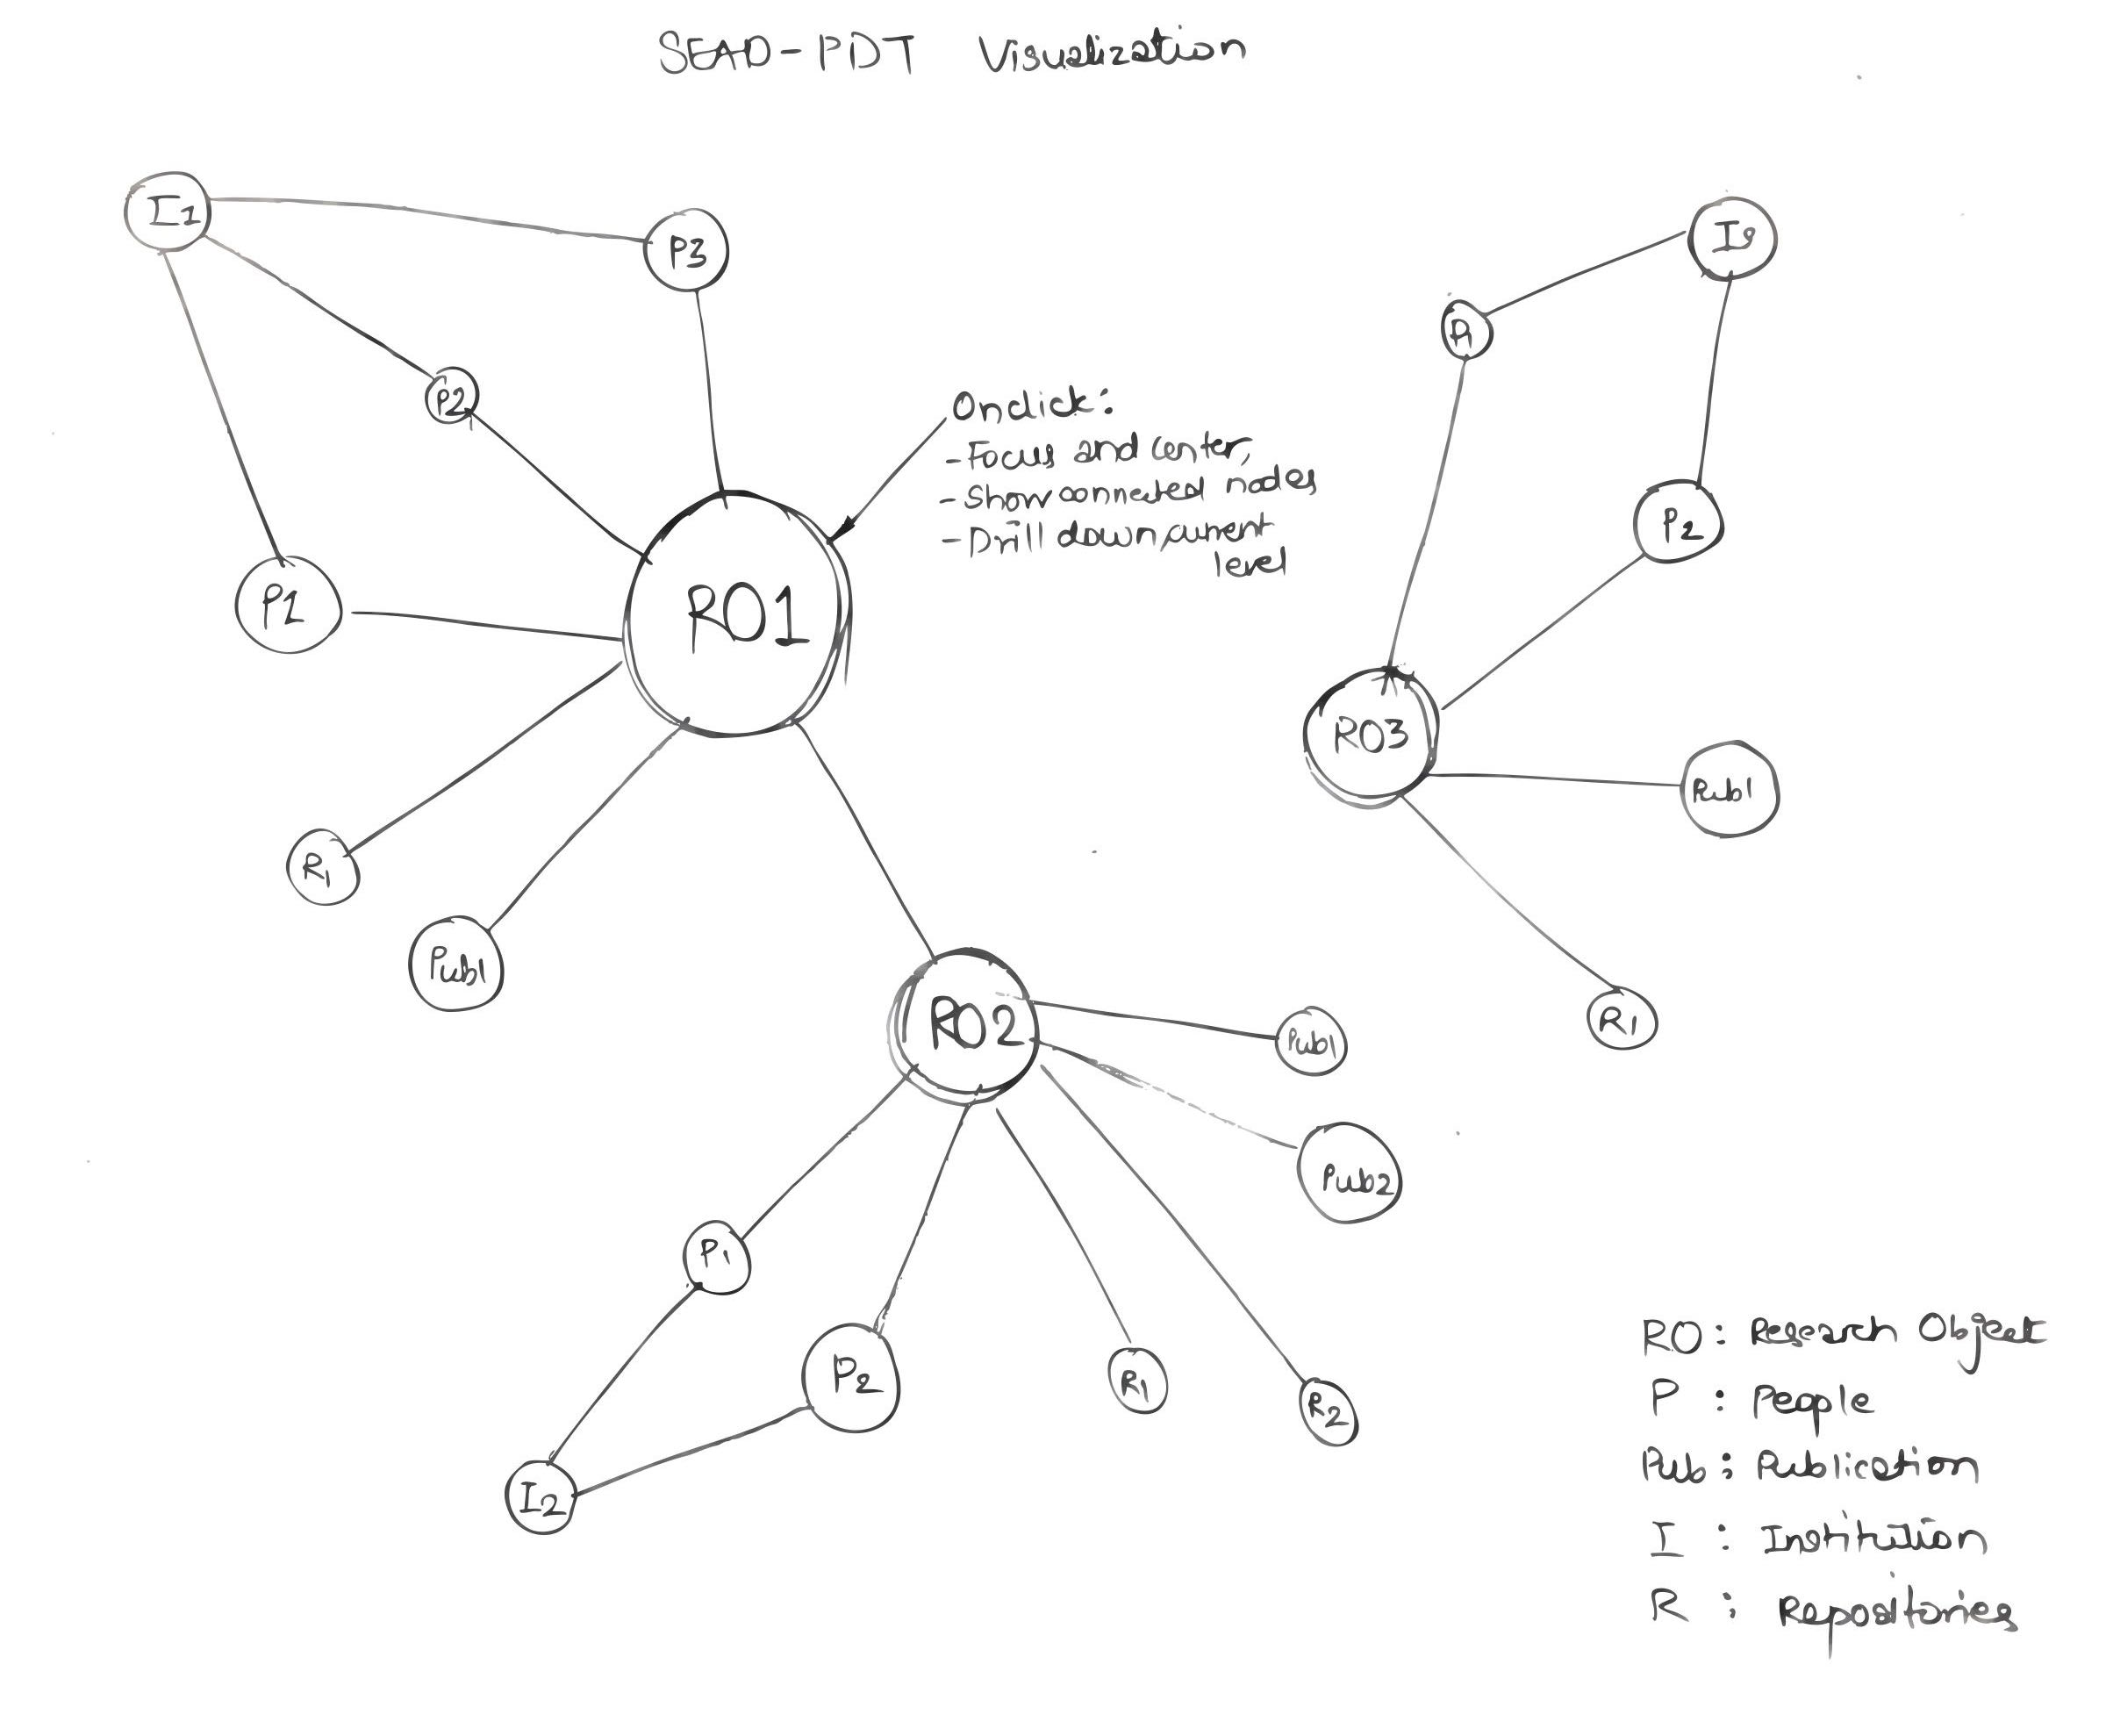 SEAD-PDT Visualization
I1
P3
I9
P1
P2
Onclick:
- Focus and center,
- show connected nodes
- Drill down current
level
P2
P1
RO1
RO3
Pub1
R1
Pub1
RO2
R1
Pub1
Pub2
P1
P2
R1
R2
I2
RO : Research Object
P : People
Pub : Publication
I : Institution
R : Repositories